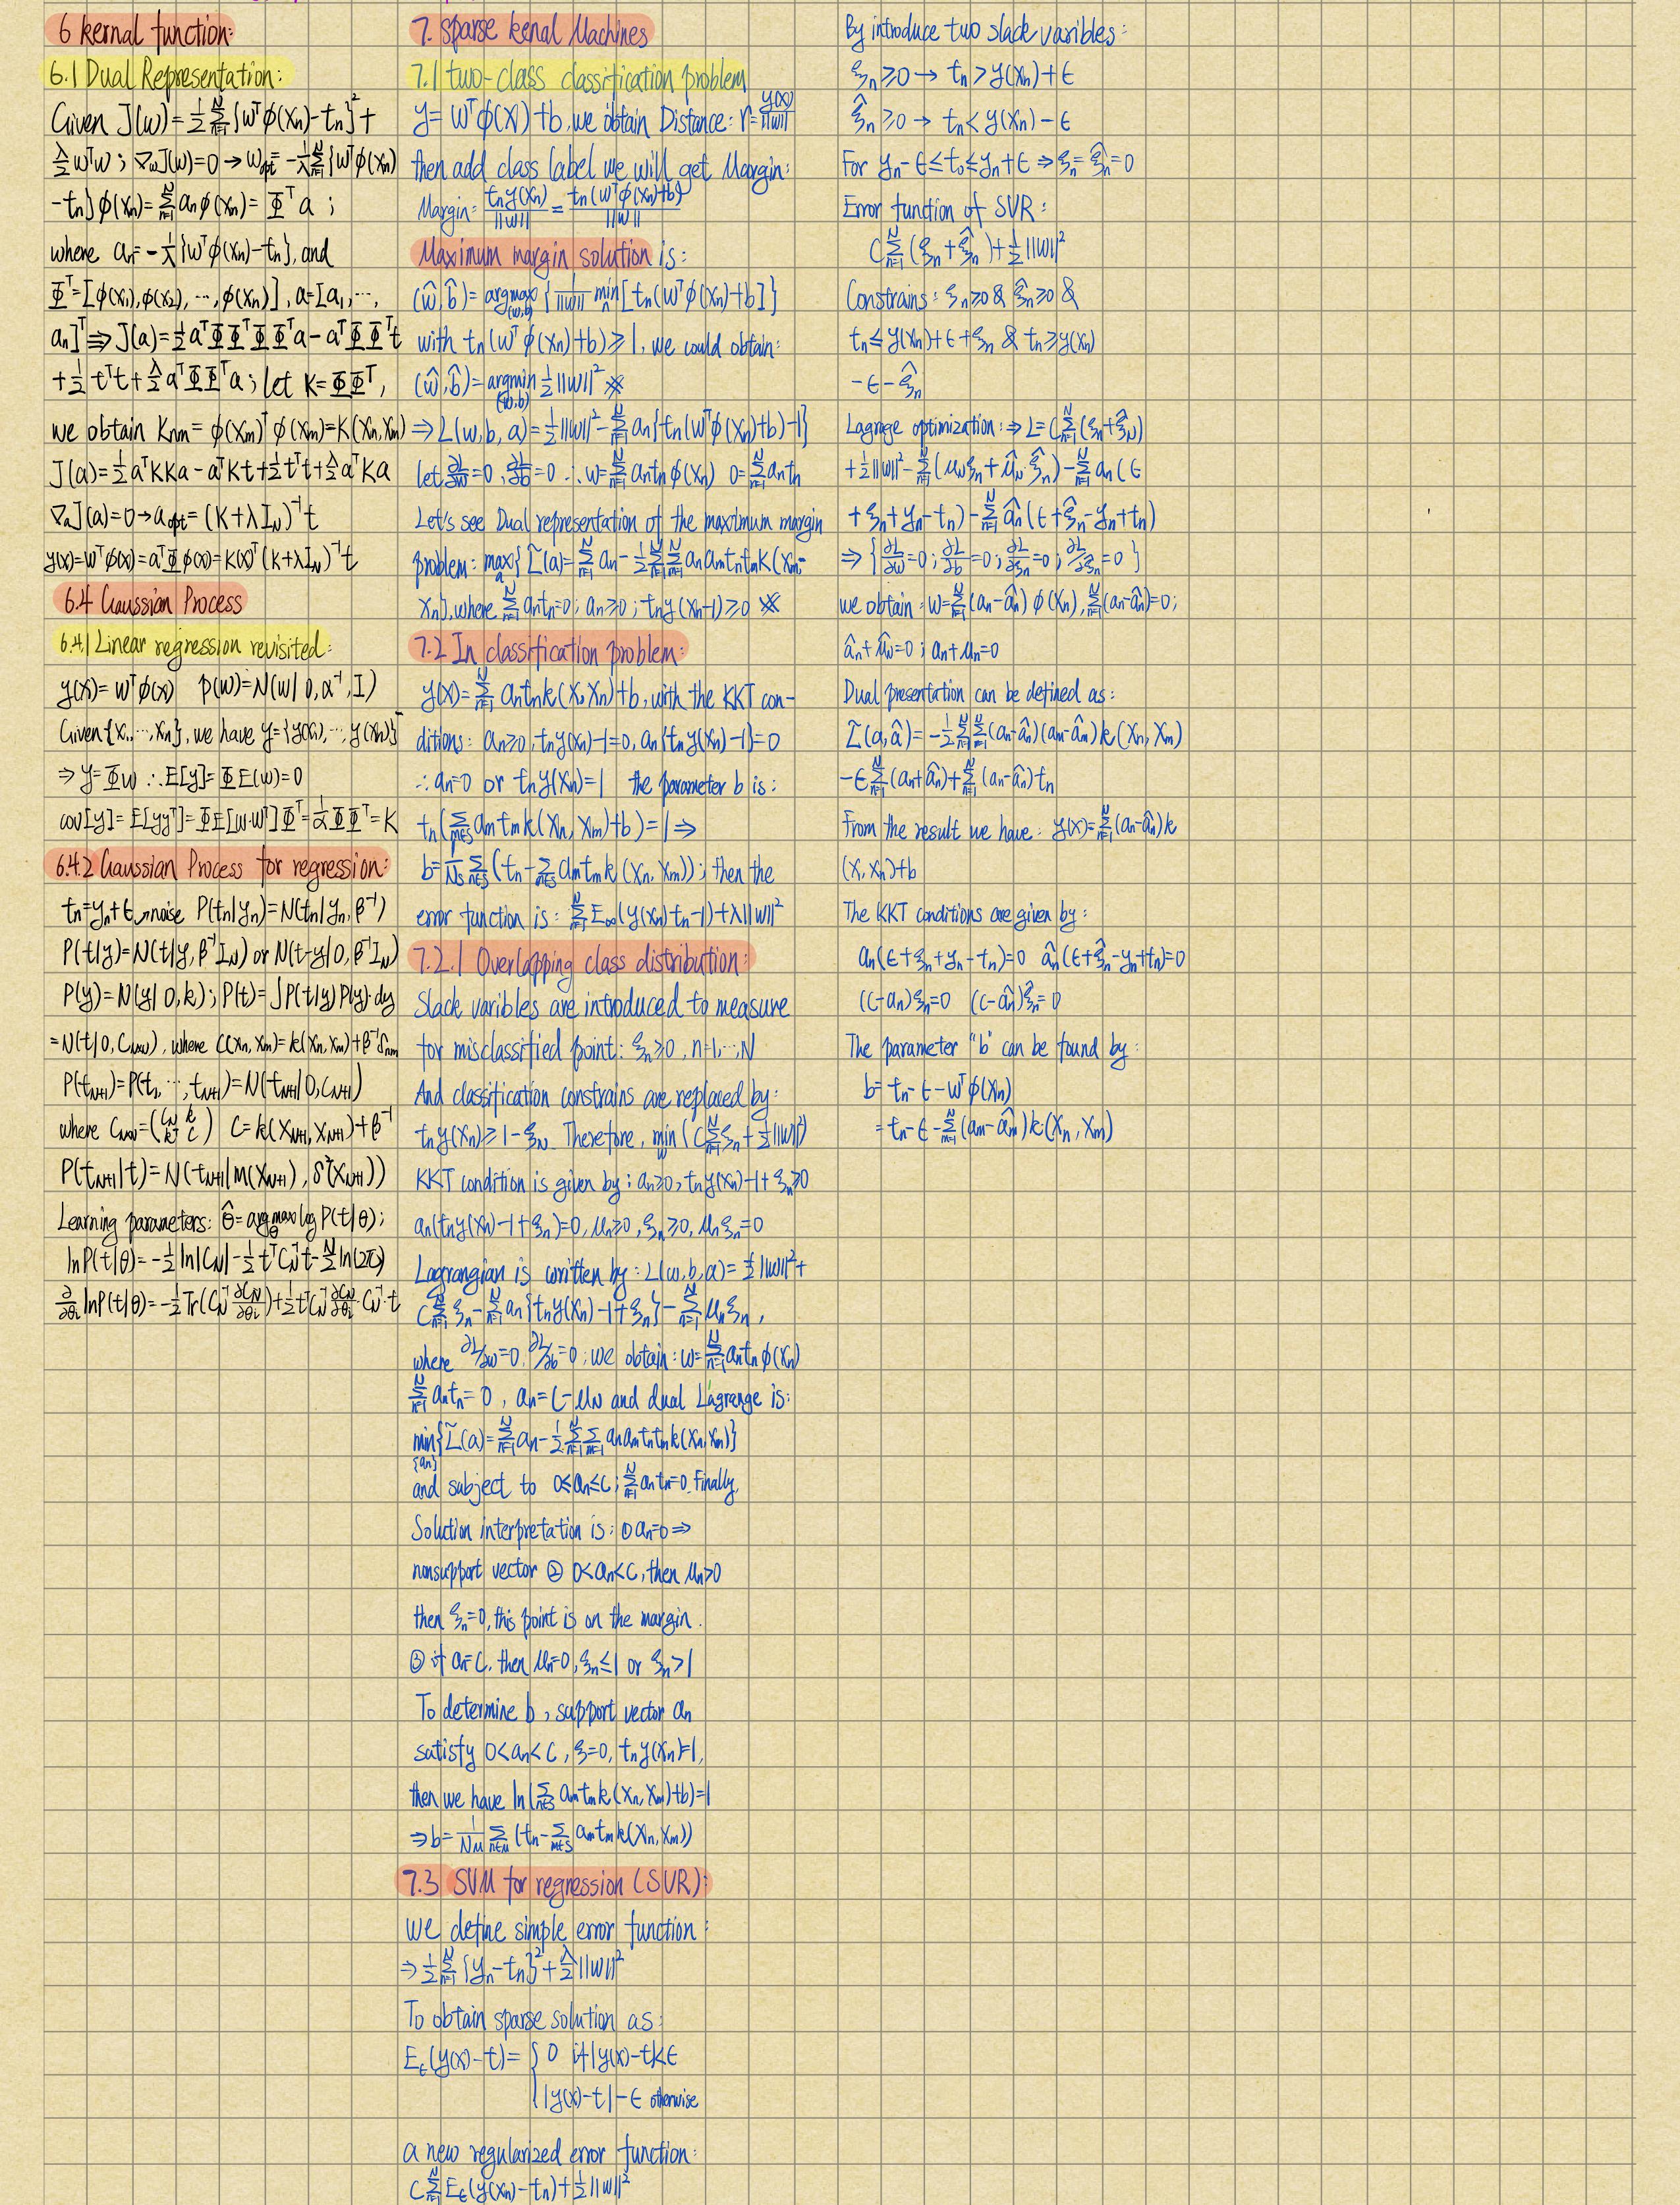 6 kernal function:
6.1 Dual Representation:
Given J(w)=½∑ₙ₌₁ᴺ{wᵀϕ(xₙ)-tₙ}²+
λ/2 wᵀw ; ∇wJ(w)=0 → w_opt = -1/λ ∑ₙ₌₁ᴺ{wᵀϕ(xₙ)
-tₙ}ϕ(xₙ)=∑ₙ₌₁ᴺ aₙϕ(xₙ)=Φᵀa ;
where aₙ=-1/λ{wᵀϕ(xₙ)-tₙ}, and
Φᵀ=[ϕ(x₁),ϕ(x₂), ..., ϕ(xₙ)], a=[a₁,...,
aₙ]ᵀ ⇒ J(a)=½aᵀΦΦᵀΦΦᵀa-aᵀΦΦᵀt
+½tᵀt+λ/2 aᵀΦΦᵀa ; let K=ΦΦᵀ,
we obtain Knm=ϕ(xₘ)ᵀϕ(xₘ)=K(xₙ,xₘ)
J(a)=½aᵀKKa-aᵀKt+½tᵀt+λ/2 aᵀKa
∇ₐJ(a)=0→a_opt=(K+λI_N)⁻¹t
y(x)=wᵀϕ(x)=aᵀΦϕ(x)=K(x)ᵀ(K+λI_N)⁻¹t
6.4 Gaussian Process
6.4.1 Linear regression revisited:
y(x)=wᵀϕ(x) p(w)=N(w|0,α⁻¹,I)
Given{x₁,...,xₙ}, we have y={y(x₁),...,y(xₙ)}ᵀ
⇒ y=Φw ∴E[y]=ΦE(w)=0
cov[y]=E[yyᵀ]=ΦE[w·wᵀ]Φᵀ=1/α ΦΦᵀ=K
6.4.2 Gaussian Process for regression:
tₙ=yₙ+ϵ→noise P(tₙ|yₙ)=N(tₙ|yₙ,β⁻¹)
P(t|y)=N(t|y,β⁻¹I_N) or N(t-y|0,β⁻¹I_N)
P(y)=N(y|0,k) ; P(t)=∫P(t|y)P(y)·dy
=N(t|0,C_N×N), where C(xₙ,xₘ)=k(xₙ,xₘ)+β⁻¹δnm
P(t_N+1)=P(t₁,...,t_N+1)=N(t_N+1|0,C_N+1)
where C_N×N=(C_N k / kᵀ C) C=k(X_N+1,X_N+1)+β⁻¹
P(t_N+1|t)=N(t_N+1|m(x_N+1),δ²(x_N+1))
Learning parameters: θ̂=argmax_θ log P(t|θ);
lnP(t|θ)=-½ln|C_N|-½tᵀC_N⁻¹t-N/2 ln(2π)
∂/∂θᵢ lnP(t|θ)=-½Tr(C_N⁻¹ ∂C_N/∂θᵢ)+½tᵀC_N⁻¹ ∂C_N/∂θᵢ·C_N⁻¹·t
7. sparse kenal Machines
7.1 two-class classification problem
y=wᵀϕ(x)+b, we obtain Distance: r=y(x)/||w||
then add class label we will get Margin:
Margin: tₙy(xₙ)/||w||=tₙ(wᵀϕ(xₙ)+b)/||w||
Maximum margin solution is:
(ŵ,b̂)=argmax_(w,b){1/||w|| minₙ[tₙ(wᵀϕ(xₙ)+b]}
with tₙ(wᵀϕ(xₙ)+b)≥1, we could obtain:
(ŵ,b̂)=argmin_(w,b) ½||w||² ※
⇒L(w,b,a)=½||w||²-∑ₙ₌₁ᴺaₙ{tₙ(wᵀϕ(xₙ)+b)-1}
let ∂L/∂w=0, ∂L/∂b=0 ∴w=∑ₙ₌₁ᴺaₙtₙϕ(xₙ) 0=∑ₙ₌₁ᴺaₙtₙ
Let's see Dual representation of the maximum margin
problem: maxₐ{L̃(a)=∑ₙ₌₁ᴺaₙ-½∑ₙ₌₁ᴺ∑ₘ₌₁ᴺaₙaₘtₙtₘK(xₘ,
xₙ}, where ∑ₙ₌₁ᴺaₙtₙ=0; aₙ≥0; tₙy(xₙ-1)≥0 ※
7.2 In classification problem:
y(x)=∑ₙ₌₁ᴺaₙtₙk(x,xₙ)+b, with the KKT con-
ditions: aₙ≥0, tₙy(xₙ)-1=0, aₙ{tₙy(xₙ)-1}=0
∴aₙ=0 or tₙy(xₙ)=1 the parameter b is:
tₙ(∑ₘ∈s aₘtₘk(xₙ,xₘ)+b)=1⇒
b=1/Ns ∑ₙ∈s(tₙ-∑ₙ∈s aₘtₘk(xₙ,xₘ)); then the
error function is: ∑ₙ₌₁ᴺE∞(y(xₙ)tₙ-1)+λ||w||²
7.2.1 Overlapping class distribution:
Slack varibles are introduced to measure
for misclassified point: ξₙ≥0, n=1,...,N
And classification constrains are replaced by:
tₙy(xₙ)≥1-ξ_N. Therefore, min_w(C∑ₙ₌₁ᴺξₙ+½||w||²)
KKT condition is given by: aₙ≥0, tₙy(xₙ)-1+ξₙ≥0
aₙ(tₙy(xₙ)-1+ξₙ)=0, μₙ≥0, ξₙ≥0, μₙξₙ=0
Lagrangian is written by: L(w,b,a)=½||w||²+
C∑ₙ₌₁ᴺξₙ-∑ₙ₌₁ᴺaₙ{tₙy(xₙ)-1+ξₙ}-∑ₙ₌₁ᴺμₙξₙ,
where ∂L/∂w=0, ∂L/∂b=0; we obtain: w=∑ₙ₌₁ᴺaₙtₙϕ(xₙ)
∑ₙ₌₁ᴺaₙtₙ=0, aₙ=C-μ_N and dual Lagrange is:
min_{aₙ}{L̃(a)=∑ₙ₌₁ᴺaₙ-½∑ₙ₌₁ᴺ∑ₘ₌₁aₙaₘtₙtₘk(xₙ,xₘ)}
and subject to 0≤aₙ≤C; ∑ₙ₌₁ᴺaₙtₙ=0. Finally,
Solution interpretation is: ① aₙ=0⇒
nonsupport vector ② 0<aₙ<C, then μₙ>0
then ξₙ=0, this point is on the margin.
③ if aₙ=C, then μₙ=0, ξₙ≤1 or ξₙ>1
To determine b, support vector aₙ
satisfy 0<aₙ<C, ξ=0, tₙy(xₙ)=1,
then we have ln(∑ₙ∈s aₘtₘk(xₙ,xₘ)+b)=1
⇒b=1/Nμ ∑ₙ∈μ(tₙ-∑ₘ∈s aₘtₘk(xₙ,xₘ))
7.3 SVM for regression (SVR):
We define simple error function:
⇒½∑ₙ₌₁ᴺ{yₙ-tₙ}²+λ/2||w||²
To obtain sparse solution as:
Eϵ(y(x)-t)={0 if|y(x)-t|<ϵ
|y(x)-t|-ϵ otherwise
a new regularized error function:
C∑ₙ₌₁ᴺEϵ(y(xₙ)-tₙ)+½||w||²
By introduce two slack varibles:
ξₙ≥0→tₙ>y(xₙ)+ϵ
ξ̂ₙ≥0→tₙ<y(xₙ)-ϵ
For yₙ-ϵ≤tₙ≤yₙ+ϵ⇒ξₙ=ξ̂ₙ=0
Error function of SVR:
C∑ₙ₌₁ᴺ(ξₙ+ξ̂ₙ)+½||w||²
Constrains: ξₙ≥0 & ξ̂ₙ≥0 &
tₙ≤y(xₙ)+ϵ+ξₙ & tₙ≥y(xₙ)
-ϵ-ξ̂ₙ
Lagrage optimization: ⇒L=C∑ₙ₌₁ᴺ(ξₙ+ξ̂_N)
+½||w||²-∑ₙ₌₁ᴺ(μₙξₙ+μ̂ₙ·ξ̂ₙ)-∑ₙ₌₁ᴺaₙ(ϵ
+ξₙ+yₙ-tₙ)-∑ₙ₌₁ᴺâₙ(ϵ+ξ̂ₙ-yₙ+tₙ)
⇒{∂L/∂w=0; ∂L/∂b=0; ∂L/∂ξₙ=0; ∂L/∂ξ̂ₙ=0}
we obtain: w=∑ₙ₌₁ᴺ(aₙ-âₙ)ϕ(xₙ), ∑ₙ₌₁ᴺ(aₙ-âₙ)=0;
âₙ+μ̂ₙ=0; aₙ+μₙ=0
Dual presentation can be defined as:
L̃(a,â)=-½∑ₙ₌₁ᴺ∑ₘ₌₁ᴺ(aₙ-âₙ)(aₘ-âₘ)k(xₙ,xₘ)
-ϵ∑ₙ₌₁ᴺ(aₙ+âₙ)+∑ₙ₌₁ᴺ(aₙ-âₙ)tₙ
From the result we have: y(x)=∑ₙ₌₁ᴺ(aₙ-âₙ)k
(x,xₙ)+b
The KKT conditions are given by:
aₙ(ϵ+ξₙ+yₙ-tₙ)=0 âₙ(ϵ+ξ̂ₙ-yₙ+tₙ)=0
(C-aₙ)ξₙ=0 (C-âₙ)ξ̂ₙ=0
The parameter "b" can be found by:
b=tₙ-ϵ-wᵀϕ(xₙ)
=tₙ-ϵ-∑ₘ₌₁ᴺ(aₘ-âₘ)k(xₙ,xₘ)